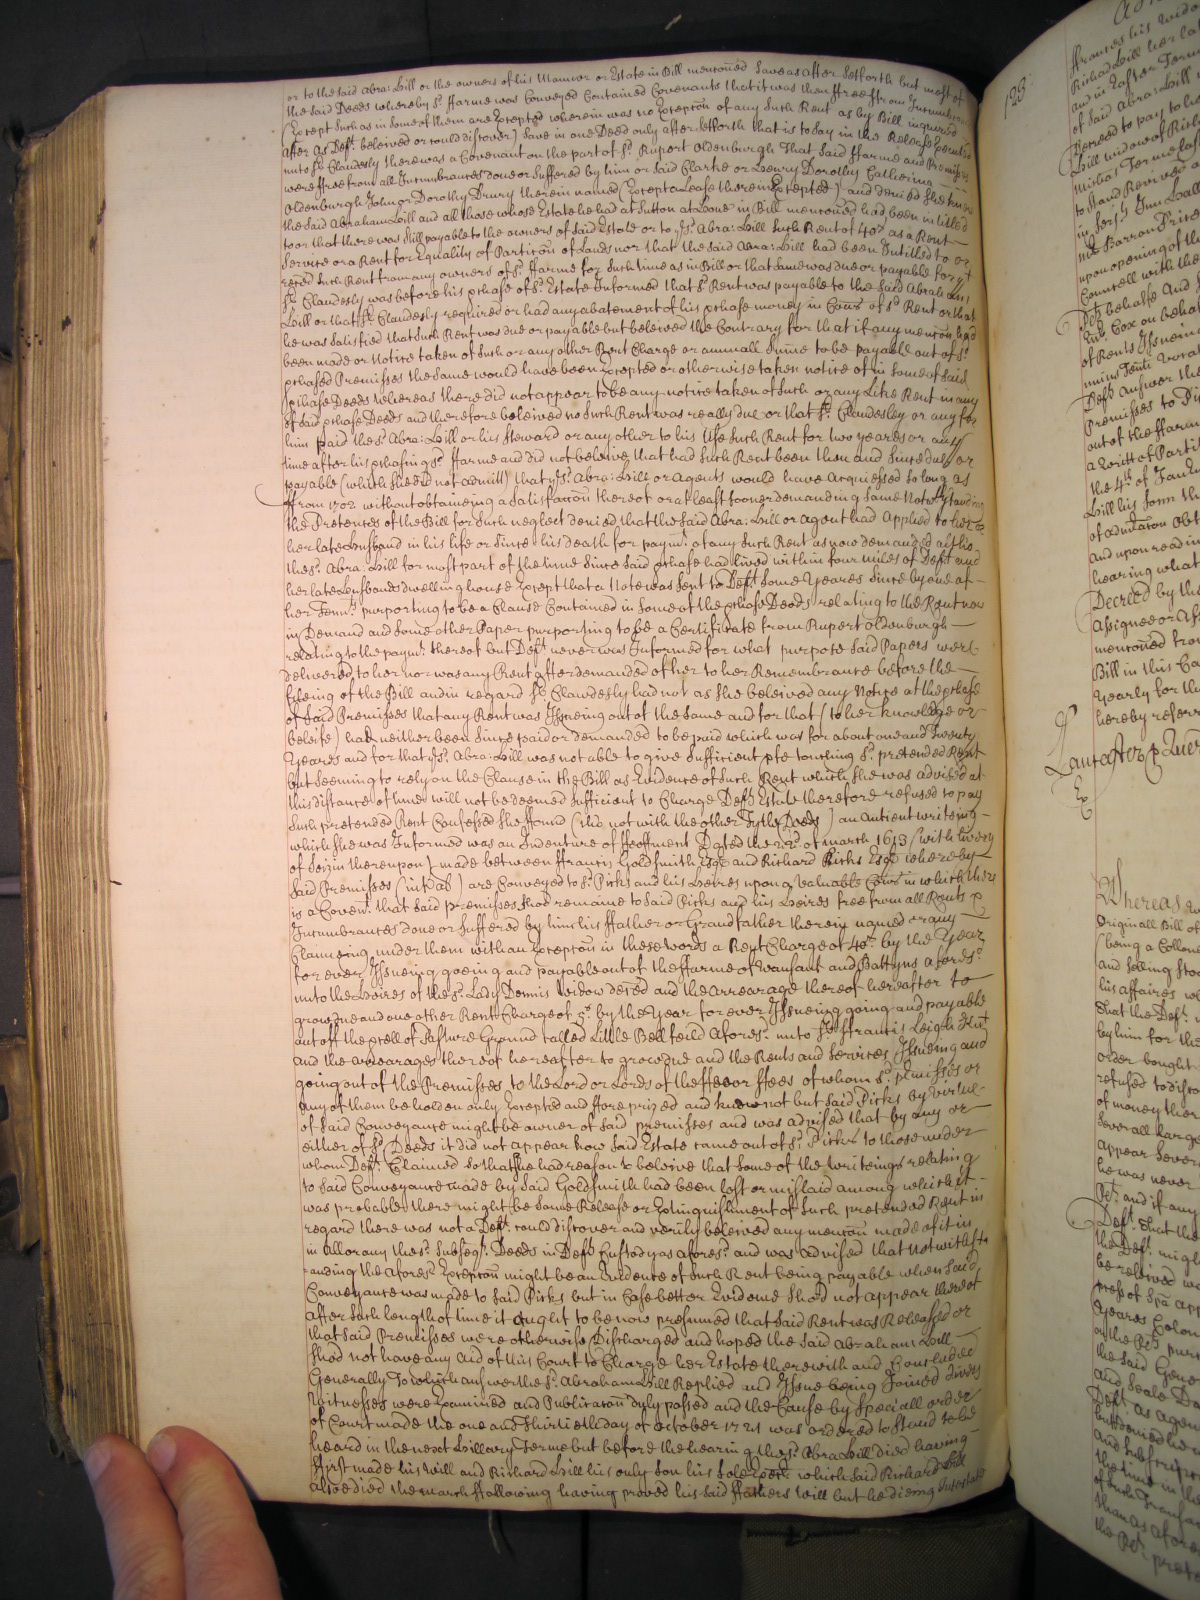 or to the said Abra: Hill or the owners of his Mannor or Estate in Bill menc̃oned Save as after Setforth but most of
the said Deeds whereby sd. ffarme was Conveyed Contained Covenants that it was then ffree from Incumbrances
(Except Such as in some of them are Excepted wherein was no Excepc̃on of any Such Rent as by Bill inquired
after As Deft. beleived or could discover) Save in one Deed only after setforth that is to say in the Release
unto sd. Claudesly there was a Covenant on the part of sd. Rupert Oldenburgh That Said ffarme and Premisses
were ffree from all Incumbrances done or Suffered by him or said Clarke or Dorothy Catherina
Oldenburgh John or Dorothy Drury therein named (Except a Lease therein Excepted) and denied She knew
the said Abraham Hill and all those whose Estate he had at Sutton at Hone in Bill menc̃oned had been intitled
to or that there was Still payable to the owners of Said Estate or to ye sd. Abra: Hill Such Rent of 40s as a Rent
Service or a Rent for Equality of Partic̃on of Lands nor that the said Abra: Hill had been Intitled to or
reced Such Rent from any owners of sd. ffarme for Such time as in Bill or that Same was due or payable for yt
sd. Claudesly was before his pchase of sd. Estate Informed that sd. Rent was payable to the Said Abraham
Hill or that sd. Claudesly required or had any abatement of his pchase money in Conc̃on of sd Rent or that
he was Satisfied that Such Rent was due or payable but beleived the Contrary for that if any menc̃on had
been made or Notice taken of Such or any other Rent Charge or annuall Sume to be payable out of sd.
pchased Premisses the Same would have been Excepted or otherwise taken notice of in Some of Said
pchase Deeds whereas there did not appear to be any notice taken of Such or any Like Rent in any
of said pchase Deeds and therefore beleived no Such Rent was really due or that sd. Claudesley or any for
him paid the sd. Abra: Hill or his Steward or any other to his Use Such Rent for two yeares or any
time after his pchasing sd. ffarme and did not beleive that had Such Rent been then and Since due or
payable (which She did not admitt) that ye sd. Abra: Hill or Agents would have Acquiesced So long as
ffrom 1702 without obtaineing a Satisfacc̃on thereof or at least sooner demanding Same Notwthstanding
the Pretences of the Bill for Such neglect denied that the Said Abra: Hill or agent had Applied to her or
her late Husband in his life or Since his death for paymt. of any Such Rent as now demanded altho
the sd. Abra: Hill for most part of the time Since Said pchase had lived within four miles of Deft and
her late Husbands dwelling house Except that a Note was Sent to Deft. Some Yeares Since by one of
her Tennts. purporting to be a Clause Contained in Some of the pchase Deeds relating to the Rent now
in Demand and Some other Paper purporting to be a Certificate from Rupert Oldenburgh
relating to the paymt. thereof but Deft never was Informed for what purpose Said Papers were
delivered to her nor was any Rent after demanded of her to her Remembrance before the
fileing of the Bill and in regard sd. Claudesly had not as She beleived any Notice at the pchase
of Said Premisses that any Rent was Issueing out of the Same and for that (to her knowledge or
beleife) had neither been Since paid or demanded to be paid which was for about one and Twenty
Yeares and for that ye sd. Abra: Hill was not able to give Sufficient pfe touching sd. pretended Rent
but Seeming to rely on the Clause in the Bill as Evidence of Such Rent which She was advised at
this distance of time will not be deemed Sufficient to Charge Defts. Estate therefore refused to pay
Such pretended Rent Confessed She ffound (tho not with the other Tytle Deeds) an Antient writeing
which She was Informed was an Indenture of ffeoffment Dated the 22d. of march 1613 (with Livery
of Seizin thereupon) made between ffrancis Goldsmith Esqr and Richard Picks Esqr whereby
Said Premisses (int al) are Conveyed to sd. Picks and his Heires upon a Valuable Conc̃on in which there
is a Covent. that Said premisses shod remaine to Said Picks and his Heires free from all Rents &
Incumbrances done or Suffered by him his ffather or Grandfather therein named or any
Claimeing under them with an Excepc̃on in these words a Rent Charge of 40s. by the Year
for ever Issueing goeing and payable out of the ffarme of and Battyns aforesd.
unto the Heires of the sd. Lady Dennis Widow deced and the arrearage thereof hereafter to
growdue and one other Rent Charge of 5s. by the Year for ever Issueing going and payable
out off the pcell of Pasture Ground called Little Bell feild aforesd. unto Sr ffrancis Leigh Knt
and the arrearages thereof hereafter to growdue and the Rents and Services Issueing and
going out of the Premisses to the Lord or Lords of the ffee or ffees of whom sd. pmisses or
any of them be holden only Excepted and fforeprized and knew not but Said Picks by virtue
of Said Conveyance might be owner of Said premisses and was advised that by any or
either of sd. Deeds it did not appear how Said Estate came out of sd. Picks to those under
whom Deft. Claimed So that She had reason to beleive that Some of the writeings relating
to Said Conveyance made by Said Goldsmith had been lost or mislaid among which it
was probable there might be Some Release or Extinguishment of Such pretended Rent in
regard there was not as Deft. could discover and verily beleived any menc̃on made of it in
in all or any the sd. Subseqt. Deeds in Defts Custody as aforesd. and was advised that notwithst
anding the aforesd Excepc̃on might be an Evidence of Such Rent being payable when Said
Conveyance was made to Said Picks but in Case better Evidence Shod not appear thereof
after Such length of time it ought to be now presumed that Said Rent was Released or
that Said Premisses were otherwise Discharged and hoped the Said Abraham Hill
Shod not have any Aid of this Court to Charge her Estate therewith and Concluded
Generally To which answer the sd. Abraham Hill Replied and Issue being Joined divers
Witnesses were Examined and Publicac̃on duly passed and the Cause by Speciall order
of Court made the one and Thirtieth day of October 1721 was ordered to Stand to be
heard in the next Hillary Terme but before the hearing the sd. Abra: Hill died having
ffirst made his Will and Richard Hill his only Son his Sole Exectr. which said Richard Hill
also died the march ffollowing haveing proved his Said ffathers Will but he dieing Intestate
123
ffrances his Widow
Richard Hill her late
and in Easter Term
of Said Abra: Hill
Decreed to pay
Hill widow of Rich
Michas Terme last
to Stand Revived
Mr Barron Price
upon opening of the
Councell with the
of Rents Issueing
Defts Answer the
Premisses to
out of the ffarm
a Writt of Parti
the 4th of January
Hill his Sonn th
of adminrac̃on Obt
and upon readin
hearing what
Decreed by the
Assignee or Ass
menc̃oned from
Bill in this Ca
yearly for the
hereby referr
Whereas
Originall Bill of
(being a
and Selling Stoc
his affaires wh
That the Deft.
by him for the
order bought
refused to disco
of money ther
Severall large
appear Sever
he was never
Pt. and if any
Deft. that the
the Deft. migh
be releived
Yeares
or the Pt. pur
the Said Gene
and Seale
Deft. as agent
but denied he
and Subscrip
the time in the
of Such Transf
than as afores
the Pt. prete